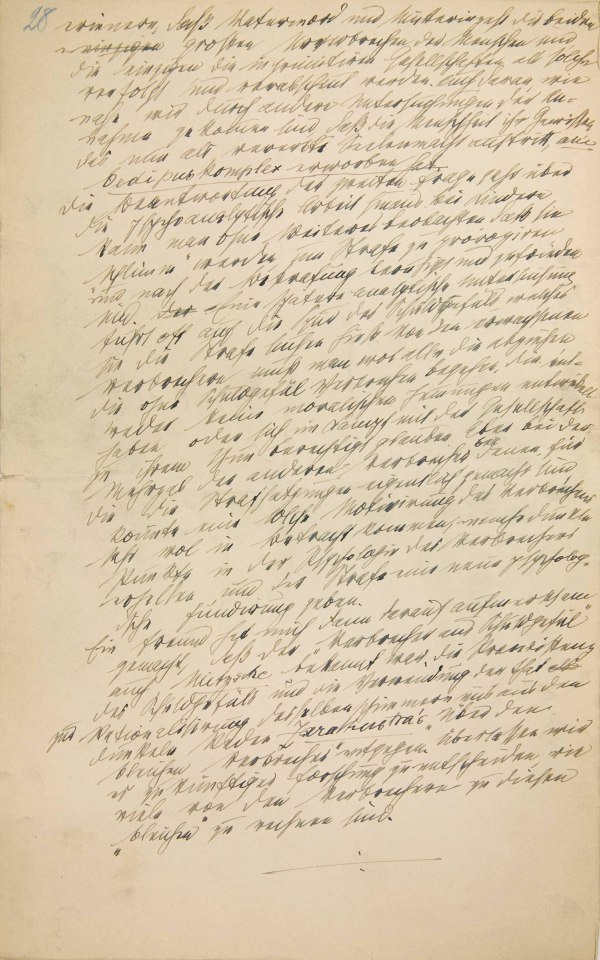 28
erinnern, daß Vatermord und Mutterinzest die beiden
einzigen großen Verbrechen der Menschen sind
die einzigen die in primitiven Gesellschaften als solche
verfolgt und verabscheut werden. Auch daran wie
nahe wir durch andere Untersuchungen der An-
nahme gekommen sind, daß die Menschheit ihr Gewissen,
das nun als vererbte Seelenmacht auftritt am
Oedipuskomplex erworben hat.
Die Beantwortung der zweiten Frage geht über
die psychoanalytische Arbeit hinaus. Bei Kindern
kann man ohne weiteres beobachten daß sie
"schlimm" werden, um Strafe zu provoziren
und nach der Bestrafung beruhigt und zufrieden
sind. Eine spätere analytische Untersuchung
führt oft auf die Spur des Schuldgefühls welches
sie die Strafe suchen hieß. Von den erwachsenen
Verbrechern muß man wol alle die abziehen
die ohne Schuldgefühl Verbrechen begehen, die ent-
weder keine moralischen Hemmungen entwickelt
haben oder sich im Kampf mit der Gesellschaft
zu ihrem Thun berechtigt glauben. Aber bei der
Mehrzal der anderen Verbrecher, bei denen, für
die die Strafsatzungen eigentlich gemacht sind
könnte eine solche Motivirung des Verbrechens
sehr wol in Betracht kommen, manche dunkle
Punkte in der Psychologie des Verbrechers
erhellen und der Strafe eine neue psycholog-
ische Fundirung geben.
Ein Freund hat mich dann darauf aufmerksam
gemacht, daß der "Verbrecher aus Schuldgefühl"
auch Nietzsche bekannt war. Die Präexistenz
des Schuldgefühls und die Verwendung der That
zur Rationalisirung desselben schimmern uns aus den
dunkeln Reden Zarathustras "Über den
bleichen Verbrecher" entgegen. Überlassen wir
es zukünftiger Forschung zu entscheiden wie
viele von den Verbrechern zu diesen
"bleichen" zu rechnen sind.